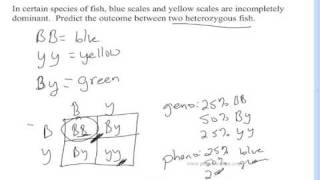 In certain species of fish, blue scales and yellow scales are incompletely
dominant. Predict the outcome between two heterozygous fish.
BB= blue
yy = yellow
By = green
B y
B BB By
y By yy
geno: 25% BB
50% By
25% yy
pheno: 25% blue
50% green